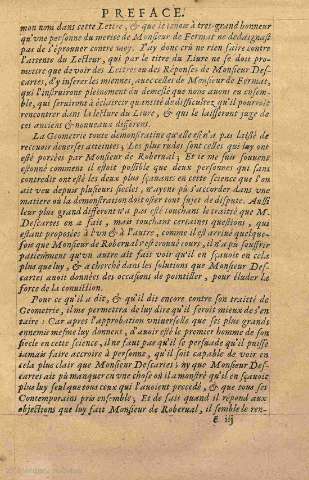 PREFACE.
mon nom dans cette Lettre, & que ie tenois à tres-grand honneur
qu'vne personne du merite de Monsieur de Fermat ne dedaignast
pas de s'éprouuer contre moy. I'ay donc crû ne rien faire contre
l'attente du Lecteur, qui par le titre du Liure ne se doit pro-
mettre que de voir des Lettres ou des Réponses de Monsieur Des-
cartes, d'y inserer les miennes, auec celles de Monsieur de Fermat,
qui l'instruiront pleinement du demeslé que nous auons eu ensem-
ble, qui seruiront à éclaircir quantité de difficultez qu'il pourroit
rencontrer dans la lecture du Liure, & qui le laisseront juge de
ces anciens & nouueaux differens.
La Geometrie toute demonstratiue qu'elle est n'a pas laissé de
receuoir diuerses atteintes; Les plus rudes sont celles qui luy ont
esté portées par Monsieur de Roberual; Et ie me suis souuent
estonné comment il estoit possible que deux personnes qui sans
contredit ont esté les deux plus sçauans en cette science que l'on
ait veu depuis plusieurs siecles, n'ayent pû s'accorder dans vne
matiere où la demonstration doit oster tout sujet de dispute. Aussi
leur plus grand different n'a pas esté touchant le traitté que M.
Descartes en a fait, mais touchant certaines questions, qui
estant proposées à l'vn & à l'autre, comme il est arriué quelque-
fois que Monsieur de Roberual s'est trouué court, il n'a pû souffrir
patiemment qu'vn autre ait fait voir qu'il en sçauoit en cela
plus que luy, & a cherché dans les solutions que Monsieur Des-
cartes auoit données des occasions de pointiller, pour éluder la
force de la conuiction.
Pour ce qu'il a dit, & qu'il dit encore contre son traitté de
Geometrie, il me permettra de luy dire qu'il feroit mieux de s'en
taire: Car apres l'approbation vniuerselle que ses plus grands
ennemis mesme luy donnent, d'auoir esté le premier homme de son
siecle en cette science, il ne faut pas qu'il se persuade qu'il puisse
iamais faire accroire à personne, qu'il soit capable de voir en
cela plus clair que Monsieur Descartes; ny que Monsieur Des-
cartes ait pû manquer en vne chose où il a monstré qu'il en sçauoit
plus luy seul que tous ceux qui l'auoient precedé, & que tous ses
Contemporains pris ensemble; Et de fait quand il répond aux
objections que luy fait Monsieur de Roberual, il semble le ren-
é iij